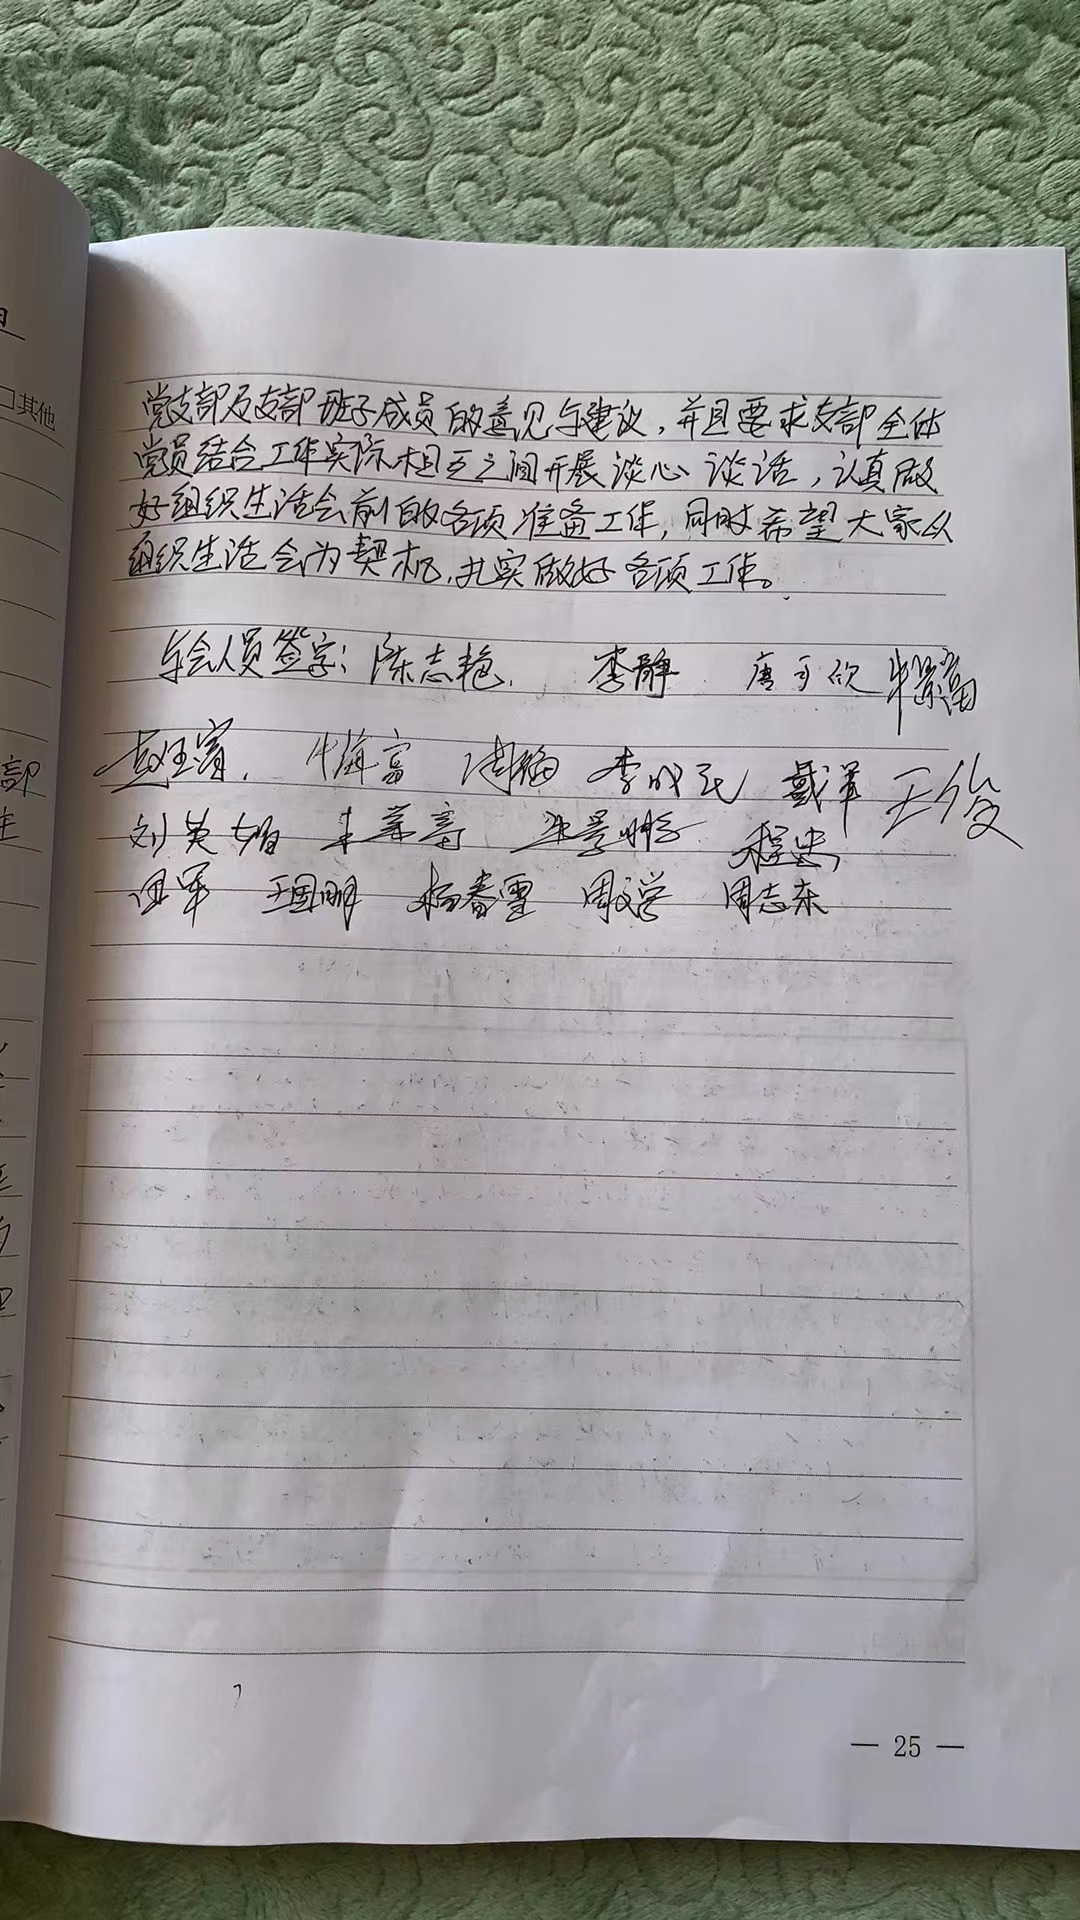 口其他
党支部及支部班子成员的意见与建议，并且要求支部全体
党员结合工作实际相互之间开展谈心谈话，认真做
好组织生活会前的各项准备工作，同时希望大家以
组织生活会为契机，扎实做好各项工作。
与会人员签字：陈志艳 李静 唐可欣
李成民 戴洋 王俊
刘英娟 程忠
王国鹏 杨春雪 周文学 周志东
— 25 —